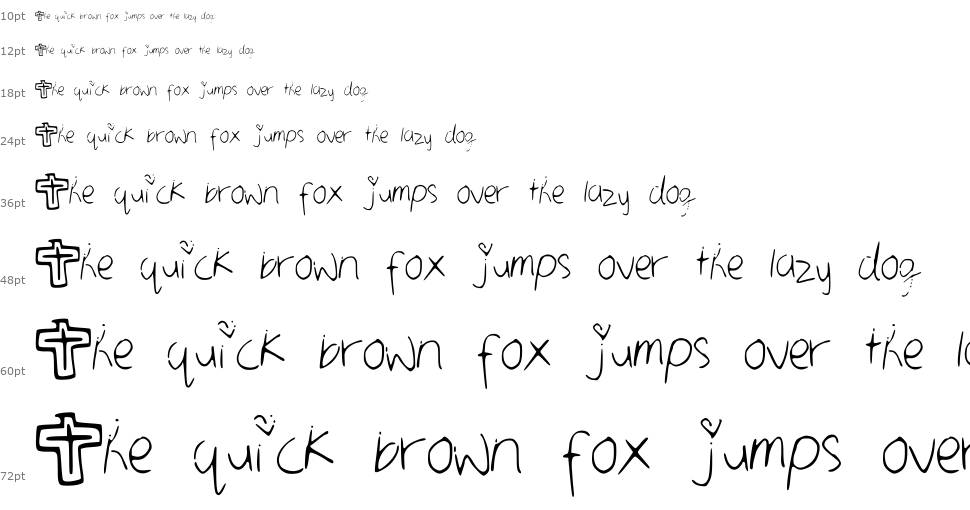 10pt The quick brown fox jumps over the lazy dog
12pt The quick brown fox jumps over the lazy dog
18pt The quick brown fox jumps over the lazy dog
24pt The quick brown fox jumps over the lazy dog
36pt The quick brown fox jumps over the lazy dog
48pt The quick brown fox jumps over the lazy dog
60pt The quick brown fox jumps over the l
72pt The quick brown fox jumps over